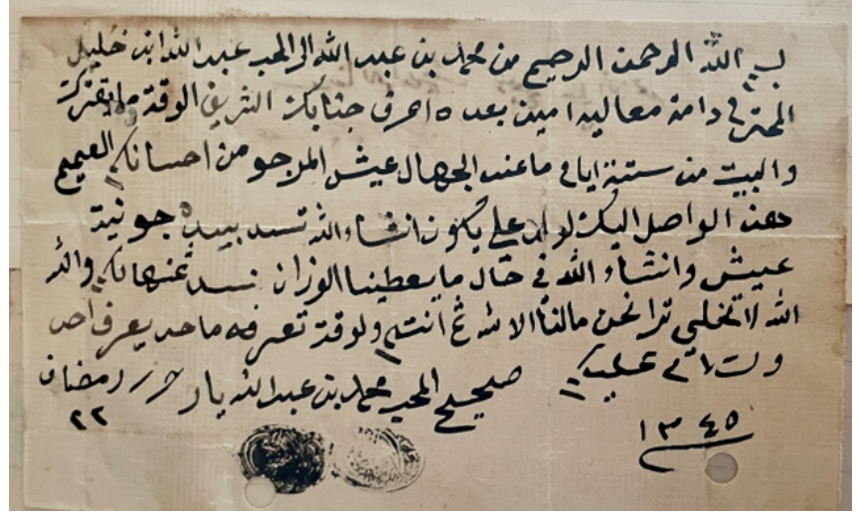 بسم الله الرحمن الرحيم من محمد بن عبد الله الى المحب عبد الله ابن خليل
المحترم دامة معاليه امين بعده اعرف جنابك الشريف الوقة ما يقترك
والبيت من ستة ايام ما عند الجهال عيش المرجو من احسانكم العميم
هذه الواصل اليك لولد علي يكون انشاء الله تسد بيده جونية
عيش وانشاء الله في حال ما يعطينا الوزان نسد ثمنها لك والله
الله لا تخلي ترا نحن مالنا الا لله ثم انتم ولوقة تعرفه ما حد يعرف احد
وسلام عليك صحيح المحب محمد بن عبد الله يار حرر رمضان
٢٢
١٣٤٥